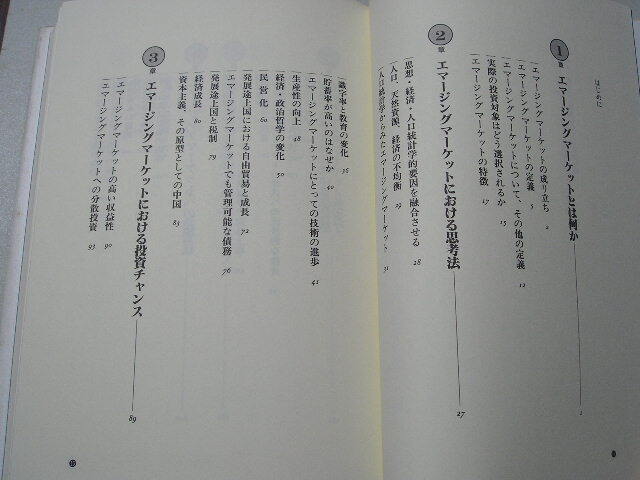 はじめに
1章 エマージングマーケットとは何か 1
エマージングマーケットの成り立ち 2
エマージングマーケットの定義 5
エマージングマーケットについて、その他の定義 12
実際の投資対象はどう選択されるか 15
エマージングマーケットの特徴 17
2章 エマージングマーケットにおける思考法 27
思想・経済・人口統計学的要因を融合させる 28
人口、天然資源、経済の不均衡 29
人口統計学からみたエマージングマーケット 31
識字率と教育の変化 36
貯蓄率が高いのはなぜか 40
エマージングマーケットにとっての技術の進歩 41
生産性の向上 48
経済・政治哲学の変化 50
民営化 60
発展途上国における自由貿易と成長 72
エマージングマーケットでも管理可能な債務 76
発展途上国と税制 79
経済成長 80
資本主義、その原型としての中国 83
3章 エマージングマーケットにおける投資チャンス 89
エマージングマーケットの高い収益性 90
エマージングマーケットへの分散投資 93